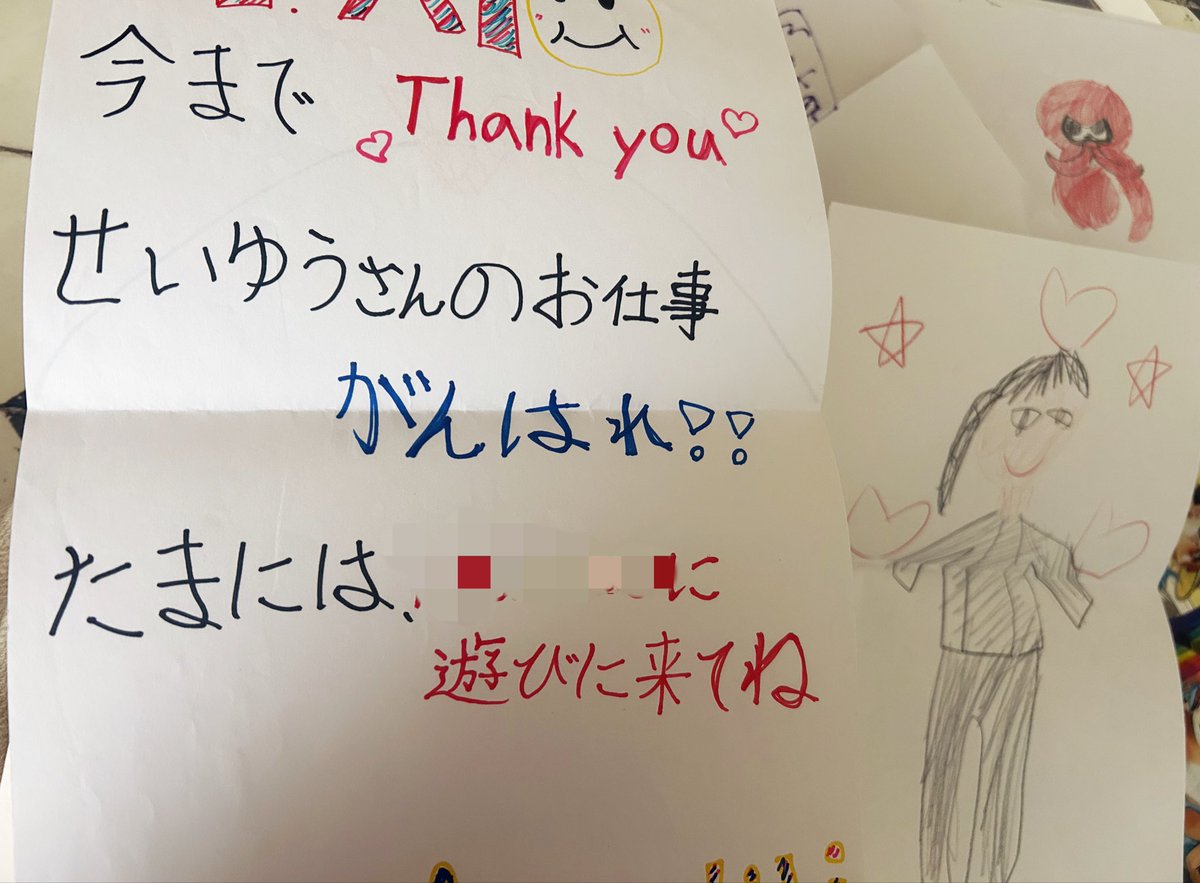 今まで Thank you
せいゆうさんのお仕事
がんばれ!!
たまには、
に
遊びに来てね